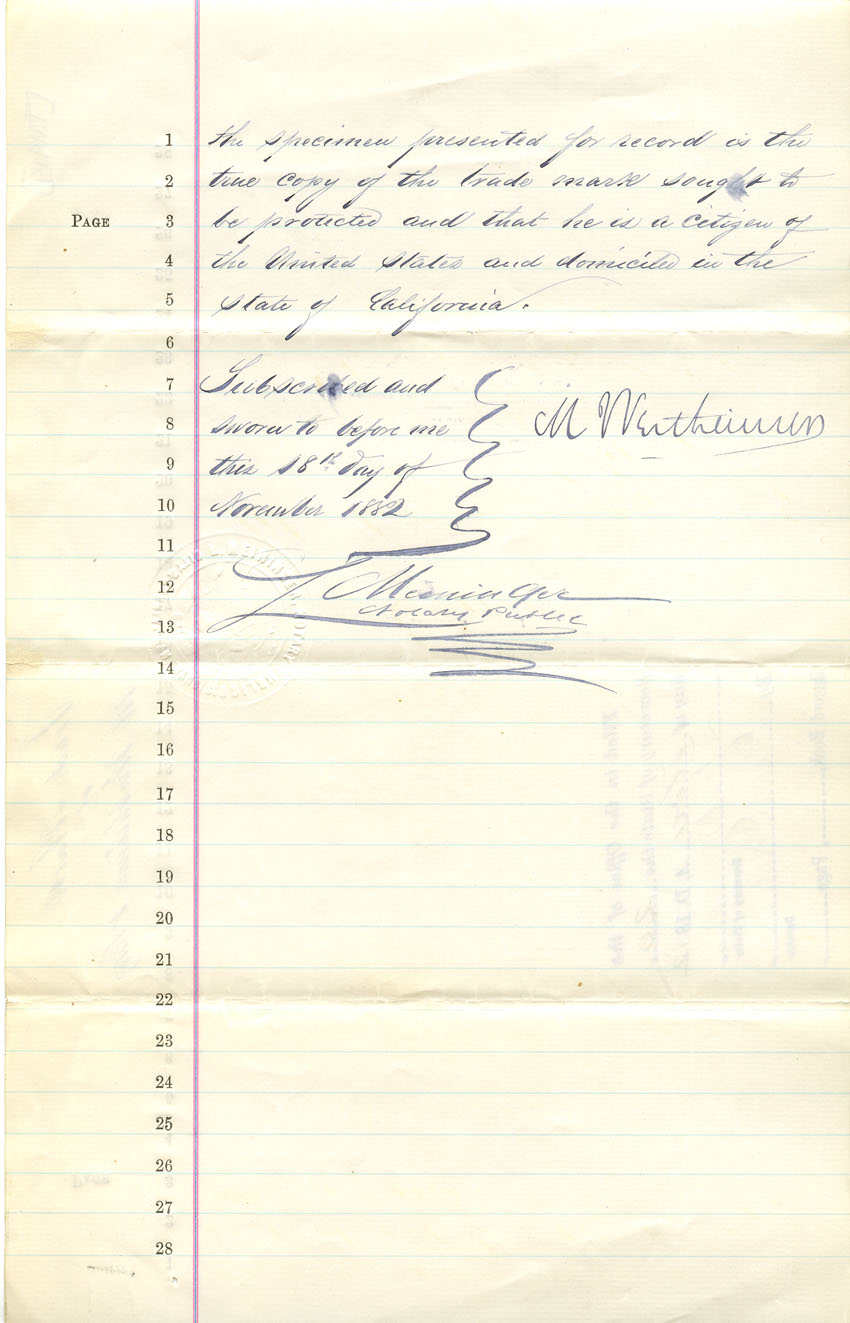 PAGE
1 the specimen presented for record is the
2 true copy of the trade mark sought to
3 be protected and that he is a citizen of
4 the United States and domiciled in the
5 state of California.
6
7 Subscribed and
8 sworn to before me M Wertheimer
9 this 18th day of
10 November 1882
11
12 L Meininger
13 Notary Public
14
15
16
17
18
19
20
21
22
23
24
25
26
27
28